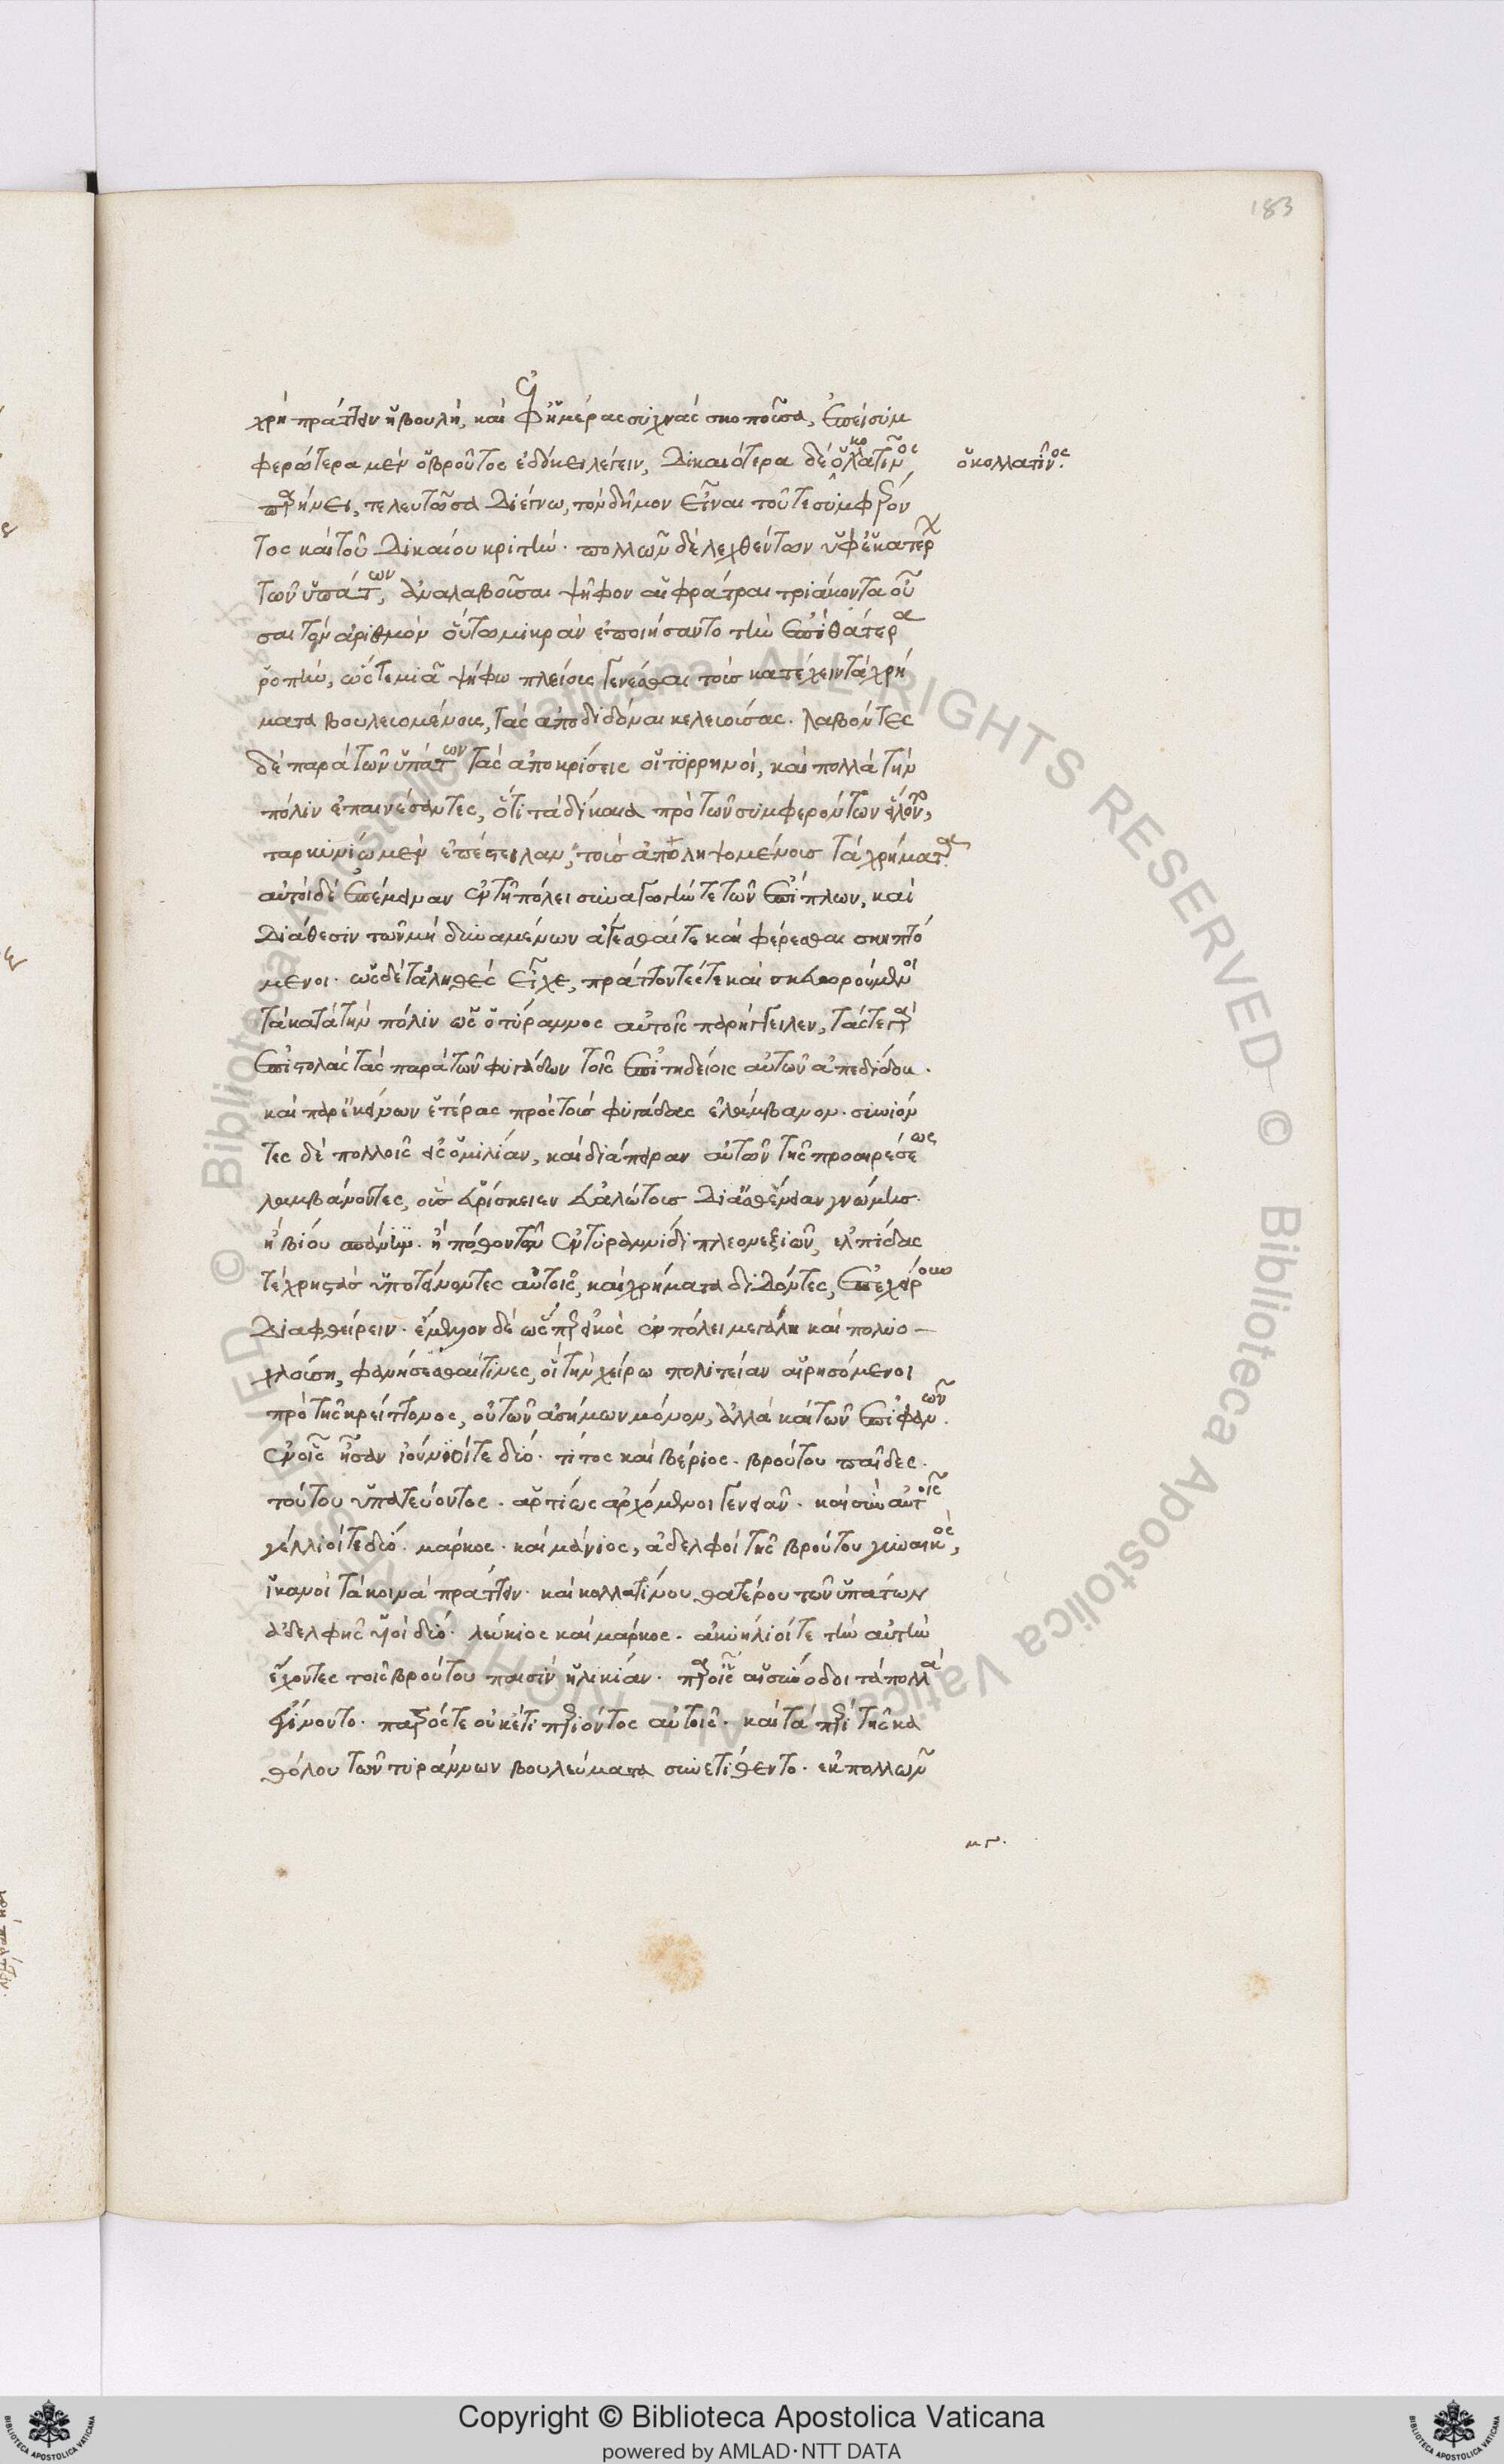 183
χρὴ πράττειν ἡ βουλή, καὶ ἐφ ἡμέρας συχνὰς σκοποῦσα, ἐπεὶ συμ
φερώτερα μὲν ὁ βροῦτος ἐδόκει λέγειν, δικαιότερα δὲ ὁ κολατῖνος
ὁ κολλατῖνος.
παρήνει, τελευτῶσα διέγνω, τὸν δῆμον εἶναι τοῦ τε συμφέρον
τος καὶ τοῦ δικαίου κριτήν. πολλῶν δὲ λεχθέντων ὑφ ἑκατέρου
τῶν ὑπάτων, ἀναλαβοῦσαι ψῆφον αἱ φράτραι τριάκοντα οὖ
σαι τὸν ἀριθμὸν οὕτω μικρὰν ἐποιήσαντο τὴν ἐπὶ θάτερα
ῥοπήν, ὥστε μιᾷ ψήφω πλείους γενέσθαι τὰς κατέχειν τὰ χρή
ματα βουλευομένας, τὰς ἀποδιδόναι κελευούσας. λαβόντες
δὲ παρὰ τῶν ὑπάτων τὰς ἀποκρίσεις οἱ τυρρηνοὶ, καὶ πολλὰ τὴν
πόλιν ἐπαινέσαντες, ὅτι τὰ δίκαια πρὸ τῶν συμφερόντων εἵλοντο,
ταρκυνίω μὲν ἐπέστειλαν, τοὺς ἀποληψομένους τὰ χρήματα.
αὐτοὶ δὲ ἐπέμειναν ἐν τῇ πόλει συναγωγήν τε τῶν ἐπίπλων, καὶ
διάθεσιν τῶν μὴ δυναμένων ἄγεσθαί τε καὶ φέρεσθαι σκηπτό
μενοι. ὡς δὲ τἀληθὲς εἶχε, πράττοντές τε καὶ σκευωρούμενοι
τὰ κατὰ τὴν πόλιν ὡς ὁ τύραννος αὐτοῖς παρήγγειλεν, τάς τε γὰρ
ἐπιστολὰς τὰς παρὰ τῶν φυγάδων τοῖς ἐπιτηδείοις αὐτῶν ἀπεδίδου.
καὶ παρ ἐκείνων ἑτέρας πρὸς τοὺς φυγάδας ἐλάμβανον. συνιόν
τες δὲ πολλοῖς εἰς ὁμιλίαν, καὶ διάπειραν αὐτῶν τῆς προαιρέσεως
λαμβάνοντες, οὓς εὑρίσκειεν εὐαλώτους δι ἀσθένειαν γνώμης.
ἢ βίου σπάνιν. ἢ πόθον τῶν ἐν τυραννίδι πλεονεξιῶν, ἐλπίδας
τε χρηστὰς ὑποτείνοντες αὐτοῖς, καὶ χρήματα διδόντες, ἐπεχείρουν
διαφθείρειν. ἔμελλον δὲ ὡς παρ εἰκὸς ἐν πόλει μεγάλη καὶ πολυο
χλούση, φανήσεσθαί τινες, οἱ τὴν χείρω πολιτείαν αἱρησόμενοι
πρὸ τῆς κρείττονος, οὐ τῶν ἀσήμων μόνον, ἀλλὰ καὶ τῶν ἐπιφανῶν.
ἐν οἷς ἦσαν ἰούνιοί τε δύο. τίτος καὶ βέριος. βρούτου παῖδες.
τούτου ὑπατεύοντος. ἀρτίως ἀρχόμενοι γενειᾶν. καὶ σὺν αὐτοῖς
γέλλιοί τε δύο. μάρκος. καὶ μάνιος, ἀδελφοὶ τῆς βρούτου γυναικὸς,
ἱκανοὶ τὰ κοινὰ πράττειν. καὶ κολλατίνου θατέρου τῶν ὑπάτων
ἀδελφῆς υἱοὶ δύο. λεύκιος καὶ μάρκος. ἀκυήλιοί τε τὴν αὐτὴν
ἔχοντες τοῖς βρούτου παισὶν ἡλικίαν. παρ οἷς αἱ σύνοδοι τὰ πολλὰ
ἐγίνοντο. πατρός τε οὐκέτι περιόντος αὐτοῖς. καὶ τὰ περὶ τῆς κα
θόλου τῶν τυράννων βουλεύματα συνετίθεντο. ἐκ πολλῶν
Copyright © Biblioteca Apostolica Vaticana
powered by AMLAD·NTT DATA